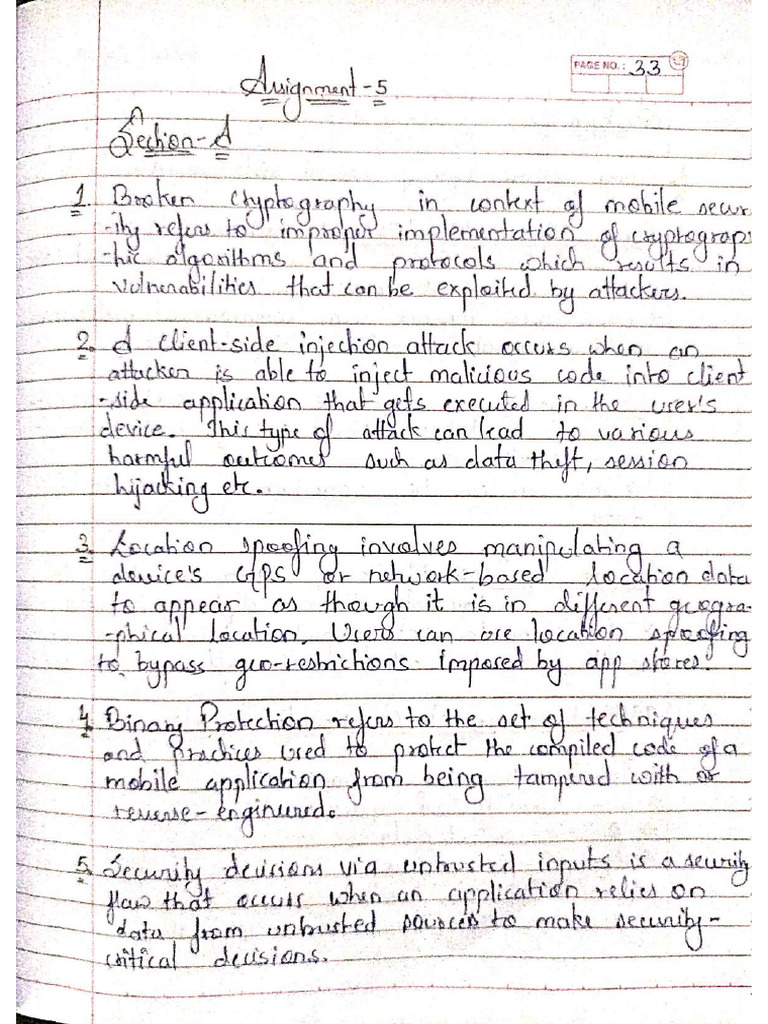 Assignment-5
PAGE NO.: 33
Section-A
1. Broken cryptography in context of mobile secur
-ity refers to improper implementation of cryptograp
-hic algorithms and protocols which results in
vulnerabilities that can be exploited by attackers.
2. A client-side injection attack occurs when an
attacker is able to inject malicious code into client
-side application that gets executed in the user's
device. This type of attack can lead to various
harmful outcomes such as data theft, session
hijacking etc.
3. Location spoofing involves manipulating a
device's GPS or network-based location data
to appear as though it is in different geogra-
-phical location. Users can use location spoofing
to bypass geo-restrictions imposed by app stores.
4. Binary Protection refers to the set of techniques
and practices used to protect the compiled code of a
mobile application from being tampered with or
reverse-engineered.
5. Security decisions via untrusted inputs is a security
flaw that occurs when an application relies on
data from untrusted sources to make security-
critical decisions.